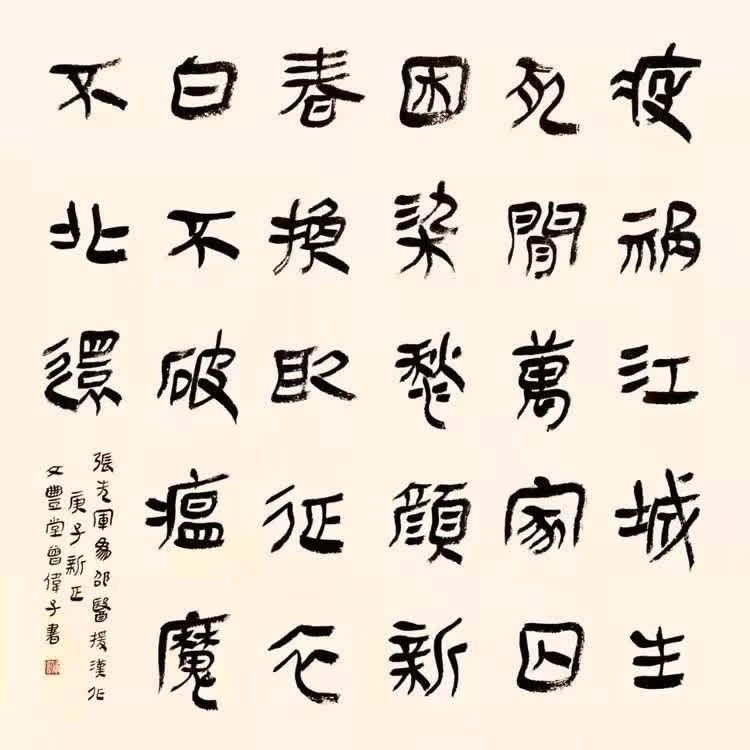 疫祸江城生
死間萬家囚
困染愁顔新
春換取征衣
白不破瘟魔
不北還
張先軍為邵醫援漢作
庚子新正
文豐堂曾偉子書